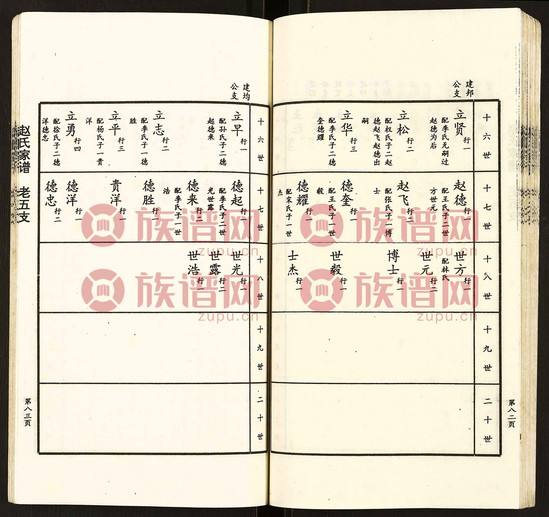 建邦
公支
十六世
立贤
行一
配李氏无嗣过
赵德为后
立松
行二
配权氏子二赵
德赵飞赵德出
嗣
立华
行三
配李氏子二德
奎德耀
十七世
赵德
行一
配王氏子二世
方世元
赵飞
行二
配张氏子一博
士
德奎
行一
配王氏子一世
毅
德耀
行二
配宋氏子一士
杰
十八世
世方
行一
配林氏
世元
行二
博士
行一
世毅
行一
士杰
行一
十九世
二十世
第八二页
建均
公支
十六世
立早
行一
配孙氏子二德
起德来
立志
行二
配李氏子一德
胜
立平
行三
配杨氏子一贵
洋
立勇
行四
配徐氏子二德
洋德忠
十七世
德起
行一
配李氏子二世
光世露
德来
行二
配李氏子一世
浩
德胜
行一
贵洋
行一
德洋
行一
德忠
行二
十八世
世光
行一
世露
行二
世浩
行一
十九世
二十世
赵氏家谱 老五支
第八三页
族谱网
zupu.cn
族谱网
zupu.cn
族谱网
zupu.cn
族谱网
zupu.cn